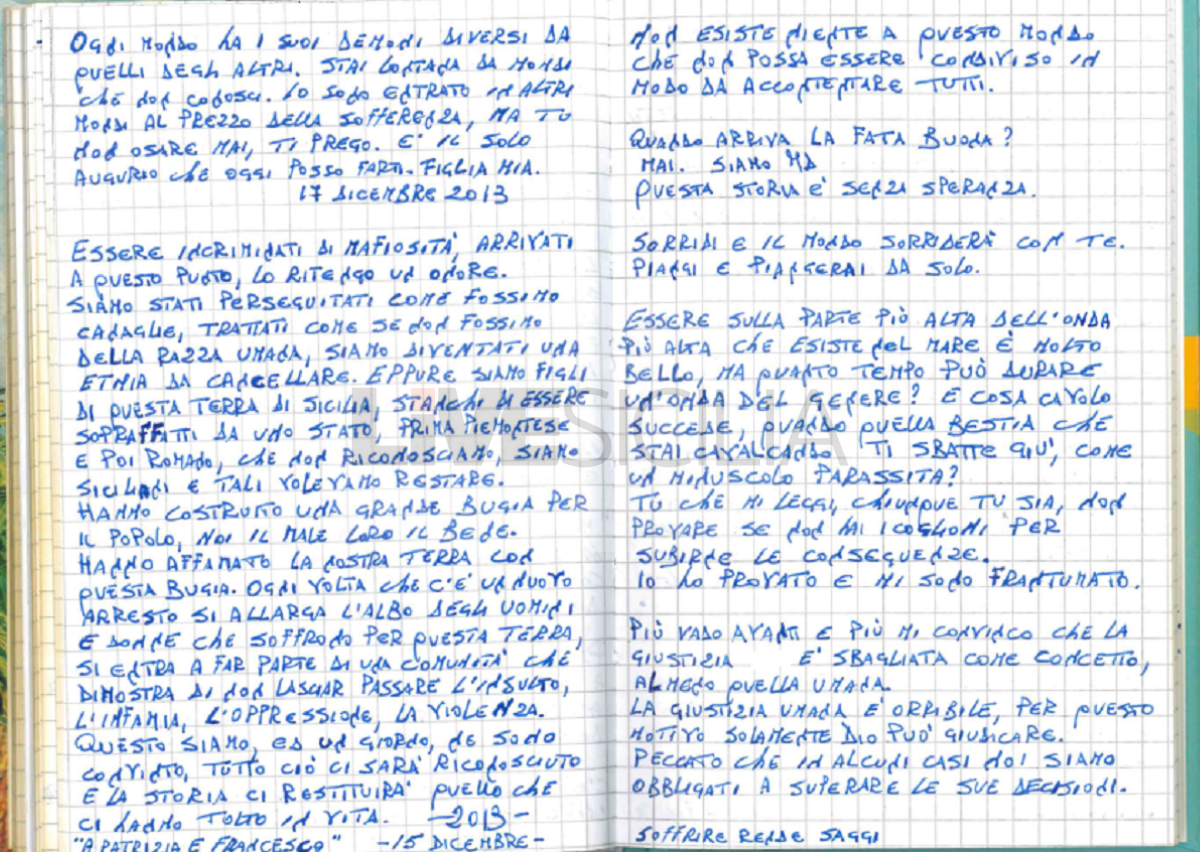 OGNI MONDO HA I SUOI DEMONI DIVERSI DA
QUELLI DEGLI ALTRI. STAI LONTANA DA MONDI
CHE NON CONOSCI. IO SONO ENTRATO IN ALTRI
MONDI AL PREZZO DELLA SOFFERENZA, MA TU
NON OSARE MAI, TI PREGO. E' IL SOLO
AUGURIO CHE OGGI POSSO FARTI. FIGLIA MIA.
17 DICEMBRE 2013
ESSERE INCRIMINATI DI MAFIOSITÀ, ARRIVATI
A QUESTO PUNTO, LO RITENGO UN ONORE.
SIAMO STATI PERSEGUITATI COME FOSSIMO
CANAGLIE, TRATTATI COME SE NON FOSSIMO
DELLA RAZZA UMANA, SIAMO DIVENTATI UNA
ETNIA DA CANCELLARE. EPPURE SIAMO FIGLI
DI QUESTA TERRA DI SICILIA, STANCHI DI ESSERE
SOPRAFFATTI DA UNO STATO, PRIMA PIEMONTESE
E POI ROMANO, CHE NON RICONOSCIAMO, SIAMO
SICILIANI E TALI VOLEVAMO RESTARE.
HANNO COSTRUITO UNA GRANDE BUGIA PER
IL POPOLO, NOI IL MALE LORO IL BENE.
HANNO AFFAMATO LA NOSTRA TERRA CON
QUESTA BUGIA. OGNI VOLTA CHE C'E' UN NUOVO
ARRESTO SI ALLARGA L'ALBO DEGLI UOMINI
E DONNE CHE SOFFRONO PER QUESTA TERRA,
SI ENTRA A FAR PARTE DI UNA COMUNITA' CHE
DIMOSTRA DI NON LASCIAR PASSARE L'INSULTO,
L'INFAMIA, L'OPPRESSIONE, LA VIOLENZA.
QUESTO SIAMO, ED UN GIORNO, NE SONO
CONVINTO, TUTTO CIÒ CI SARÀ RICONOSCIUTO
E LA STORIA CI RESTITUIRÀ QUELLO CHE
CI HANNO TOLTO IN VITA. -2013-
"A PATRIZIA E FRANCESCO" -15 DICEMBRE-
NON ESISTE NIENTE A QUESTO MONDO
CHE NON POSSA ESSERE CONDIVISO IN
MODO DA ACCONTENTARE TUTTI.
QUANDO ARRIVA LA FATA BUONA?
MAI. SIAMO
QUESTA STORIA E' SENZA SPERANZA.
SORRIDI E IL MONDO SORRIDERÀ CON TE.
PIANGI E PIANGERAI DA SOLO.
ESSERE SULLA PARTE PIÙ ALTA DELL'ONDA
PIÙ ALTA CHE ESISTE NEL MARE È MOLTO
BELLO, MA QUANTO TEMPO PUÒ DURARE
UN'ONDA DEL GENERE? E COSA CAVOLO
SUCCEDE, QUANDO QUELLA BESTIA CHE
STAI CAVALCANDO TI SBATTE GIU', COME
UN MINUSCOLO PARASSITA?
TU CHE MI LEGGI, CHIUNQUE TU SIA, NON
PROVARE SE NON HAI I COGLIONI PER
SUBIRNE LE CONSEGUENZE.
IO HO PROVATO E MI SONO FRANTUMATO.
PIÙ VADO AVANTI E PIÙ MI CONVINCO CHE LA
GIUSTIZIA E' SBAGLIATA COME CONCETTO,
ALMENO QUELLA UMANA.
LA GIUSTIZIA UMANA E' ORRIBILE, PER QUESTO
MOTIVO SOLAMENTE DIO PUÒ GIUDICARE.
PECCATO CHE IN ALCUNI CASI NOI SIAMO
OBBLIGATI A SUPERARE LE SUE DECISIONI.
SOFFRIRE RENDE SAGGI
LIVESICILIA